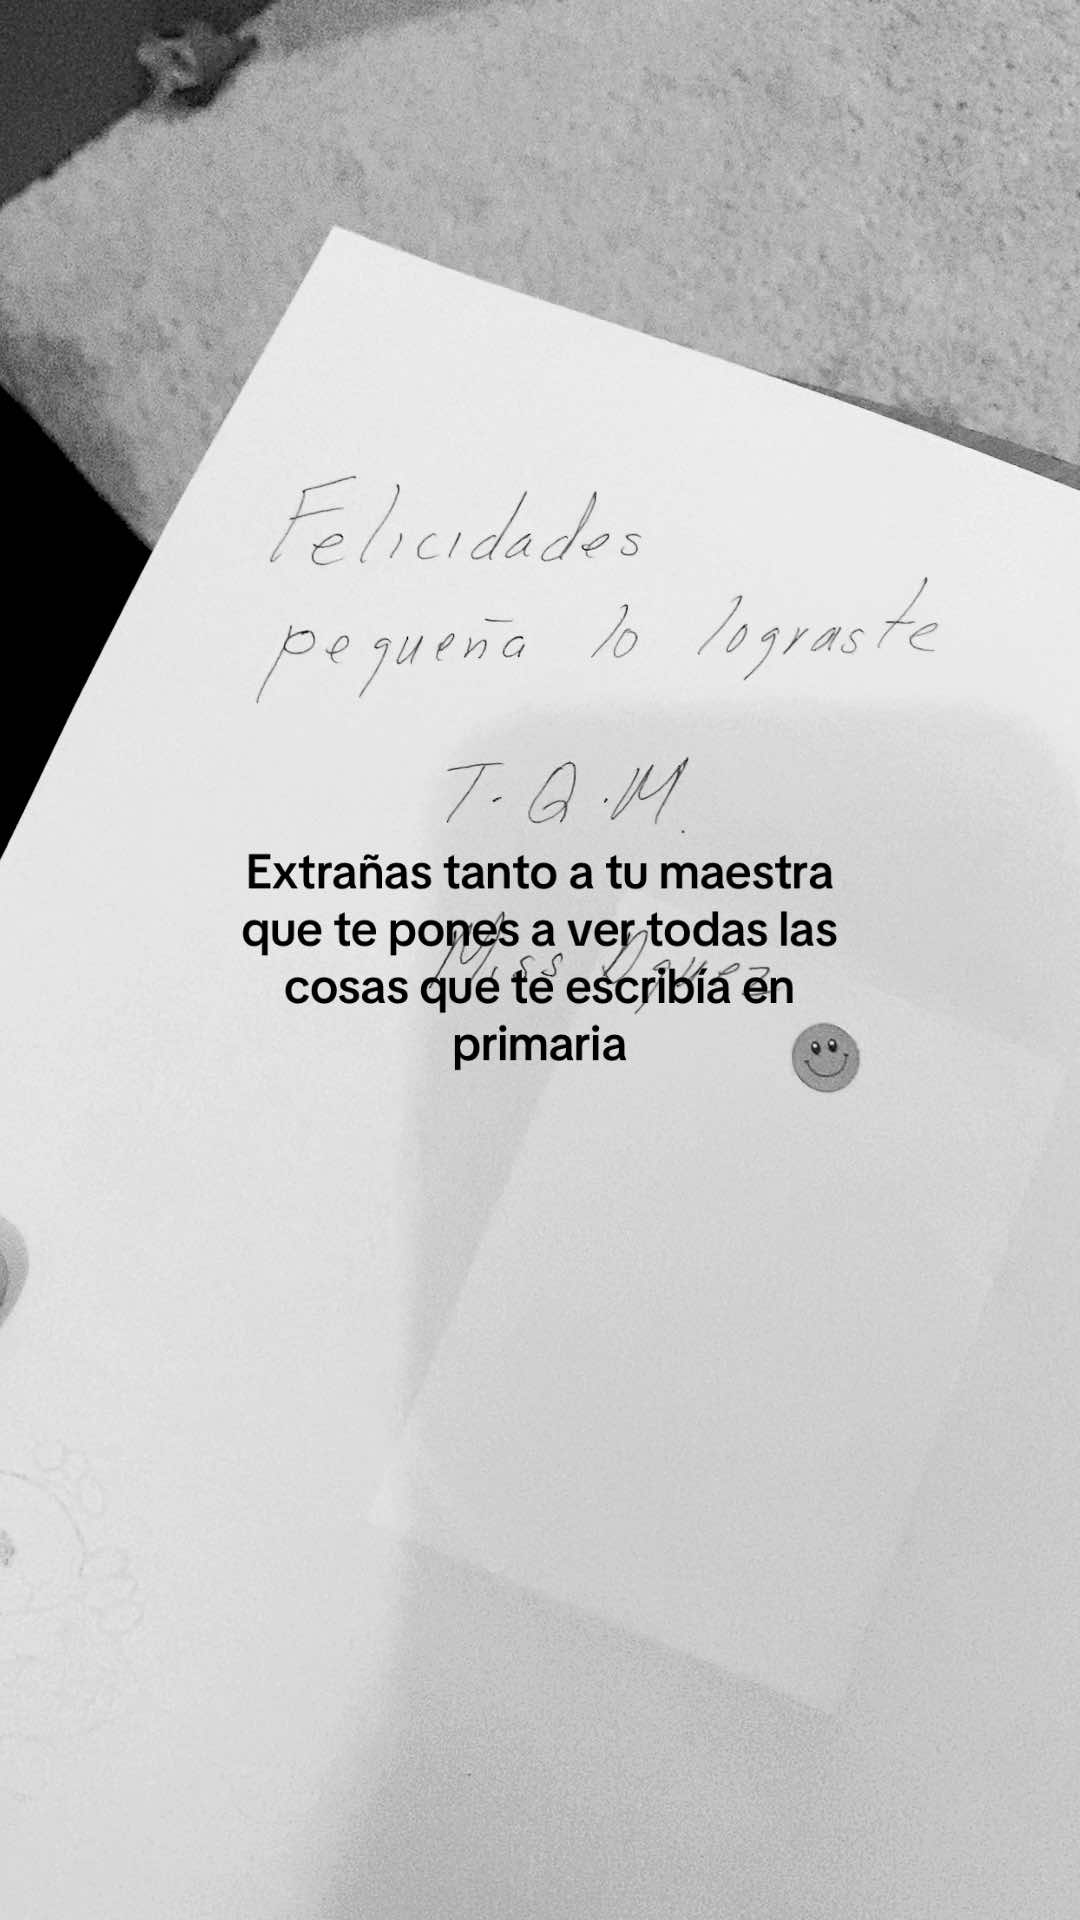 Felicidades
pequeña lo lograste
T.Q.M.
Extrañas tanto a tu maestra
que te pones a ver todas las
Miss
cosas que te escribía en
primaria